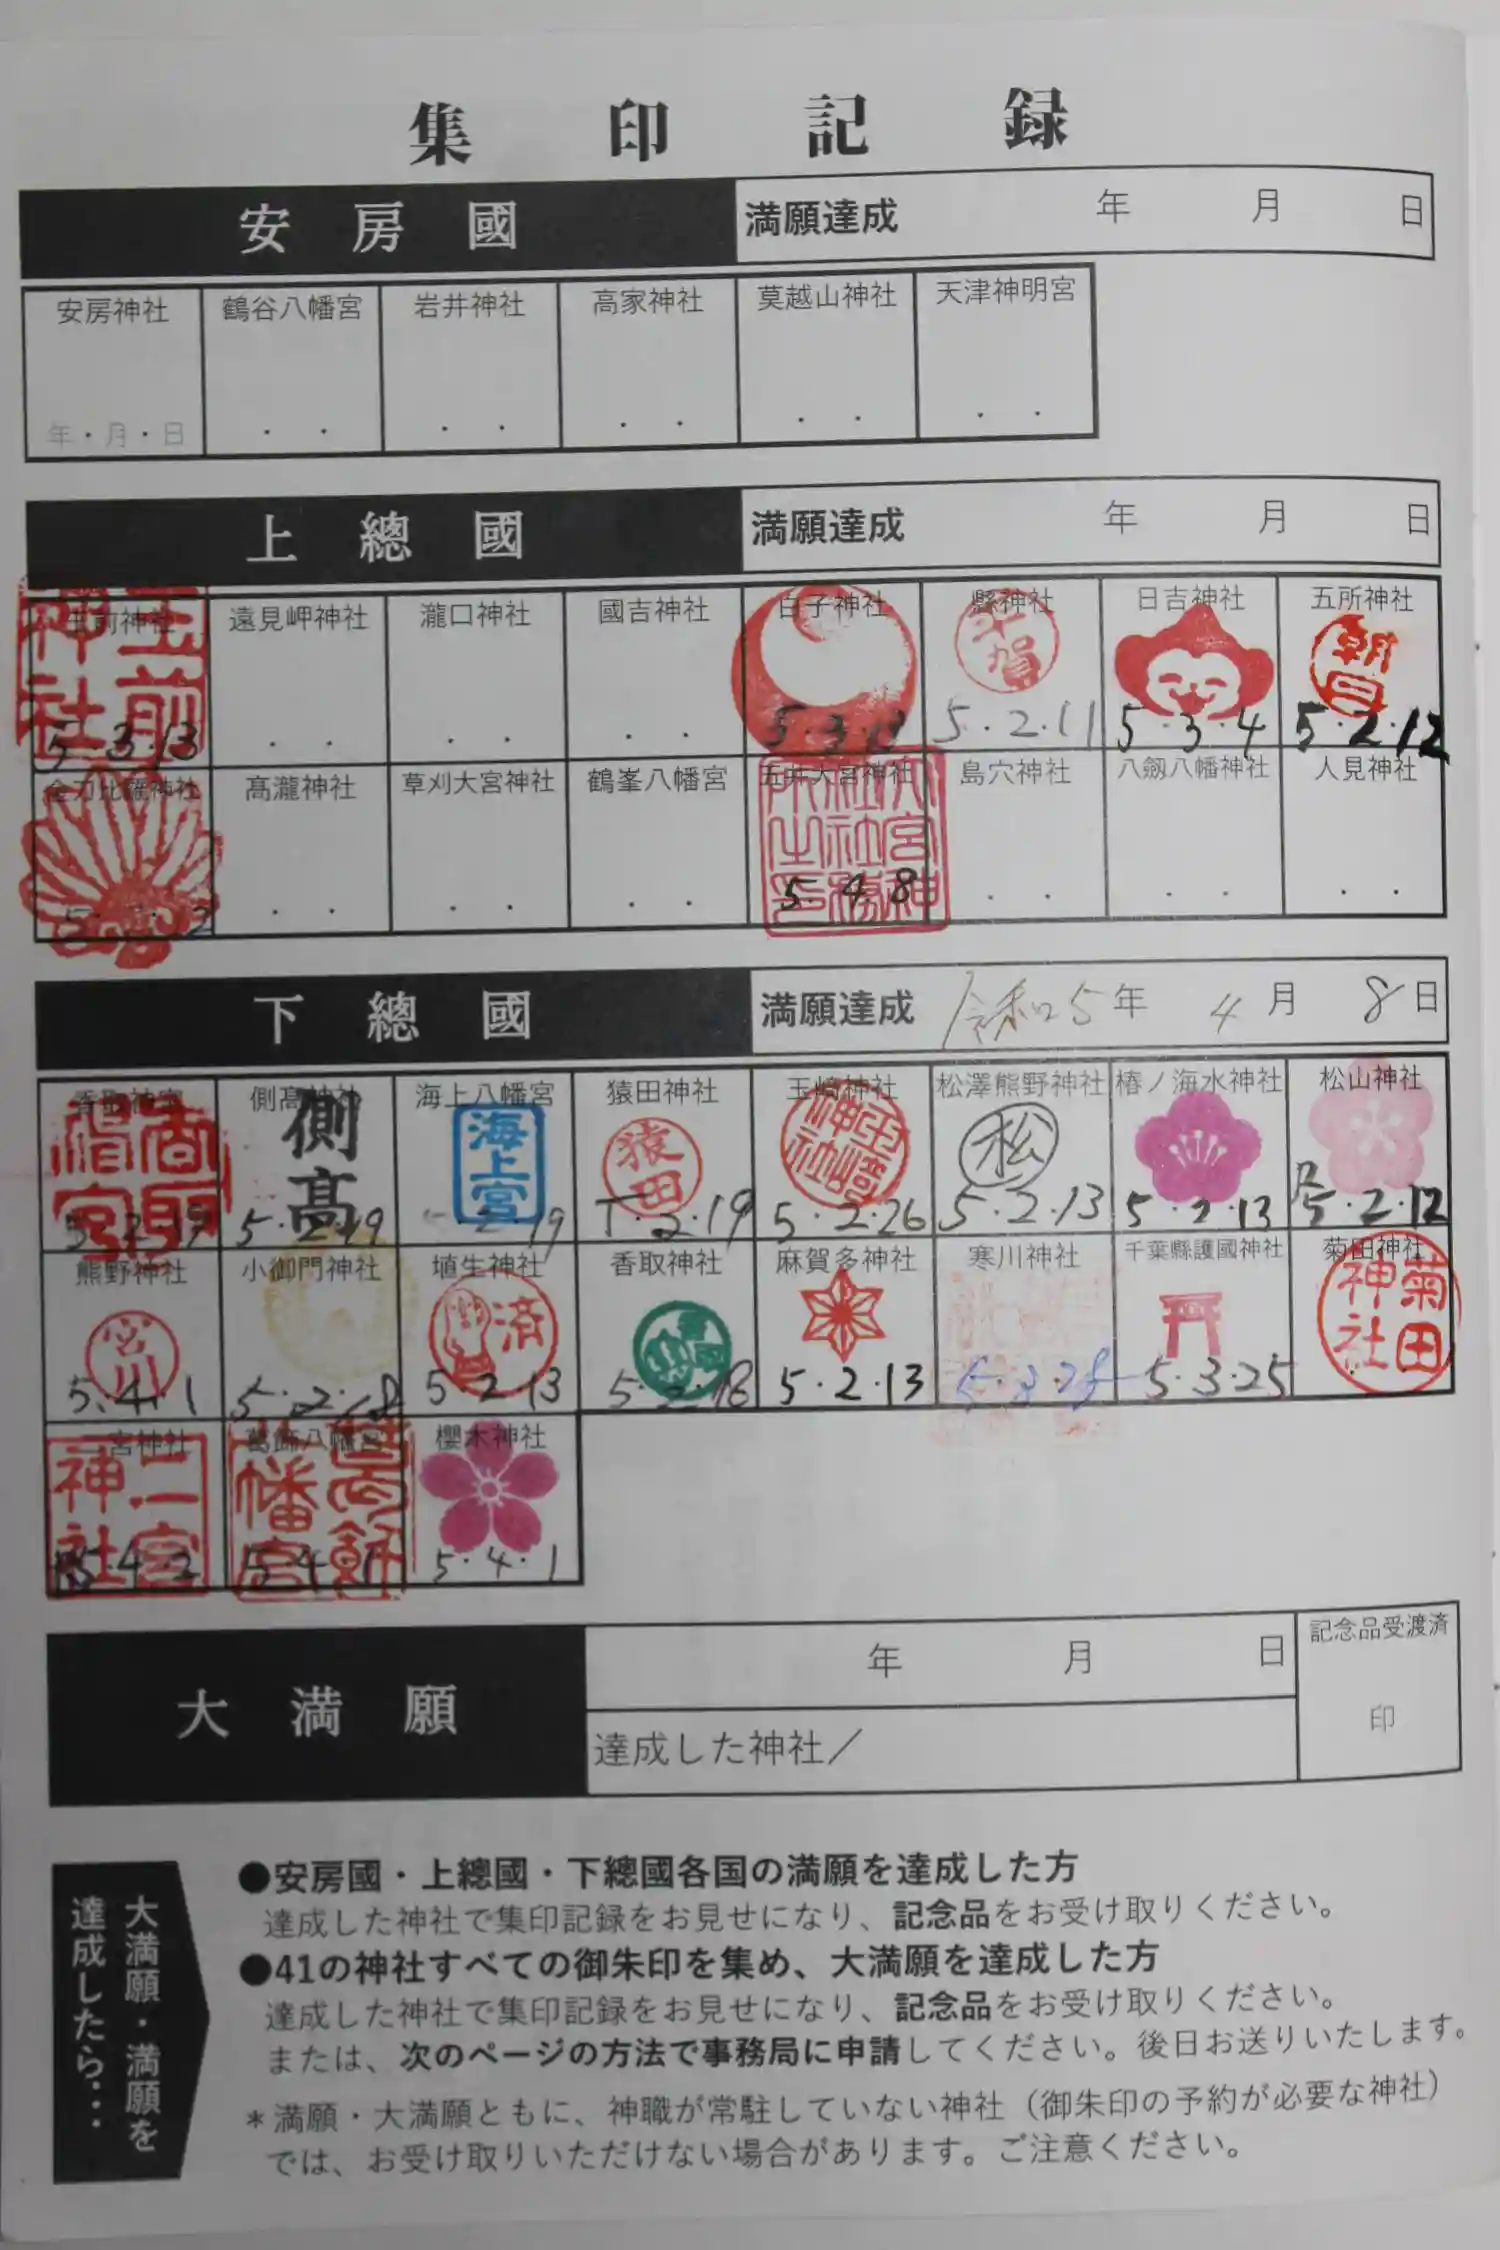 集印記録
安房國 満願達成 年 月 日
安房神社 鶴谷八幡宮 岩井神社 高家神社 莫越山神社 天津神明宮
年・月・日 ・ ・ ・ ・ ・ ・ ・ ・ ・ ・
上總國 満願達成 年 月 日
玉前神社 遠見岬神社 瀧口神社 國吉神社 白子神社 縣神社 日吉神社 五所神社
玉前神社 年賀 朝日
5・3・13 ・ ・ ・ ・ ・ ・ 5・3・ 5・2・11 5・3・4 5・2・12
金刀比羅神社 髙瀧神社 草刈大宮神社 鶴峯八幡宮 五井大宮神社 島穴神社 八劔八幡神社 人見神社
大宮神社社務所之印
・ ・ ・ ・ ・ ・ 5・4・8 ・ ・ ・ ・ ・ ・
下總國 満願達成 令和5年 4月 8日
香取神宮 側髙神社 海上八幡宮 猿田神社 玉﨑神社 松澤熊野神社 椿ノ海水神社 松山神社
香取神宮 側高 海上宮 猿田 玉崎神社 松
5・2・19 5・2・19 5・2・19 5・2・19 5・2・26 5・2・13 5・2・13 5・2・12
熊野神社 小御門神社 埴生神社 香取神社 麻賀多神社 寒川神社 千葉縣護國神社 菊田神社
宮川 済 菊田神社
5・4・1 5・2・18 5・2・13 5・2・18 5・2・13 5・3・25 5・3・25
二宮神社 葛飾八幡宮 櫻木神社
二宮神社 葛飾八幡宮
5・4・2 5・4・1 5・4・1
大満願 年 月 日 記念品受渡済
達成した神社／ 印
大満願・満願を達成したら…
●安房國・上總國・下總國各国の満願を達成した方
達成した神社で集印記録をお見せになり、記念品をお受け取りください。
●41の神社すべての御朱印を集め、大満願を達成した方
達成した神社で集印記録をお見せになり、記念品をお受け取りください。
または、次のページの方法で事務局に申請してください。後日お送りいたします。
＊満願・大満願ともに、神職が常駐していない神社（御朱印の予約が必要な神社）
では、お受け取りいただけない場合があります。ご注意ください。